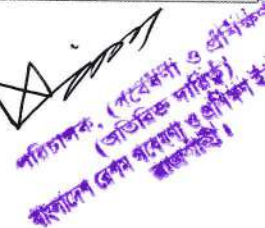 পরিচালক, (গবেষণা ও প্রশিক্ষণ)
(অতিরিক্ত দায়িত্ব)
বাংলাদেশ রেশম গবেষণা ও প্রশিক্ষণ
রাজশাহী।